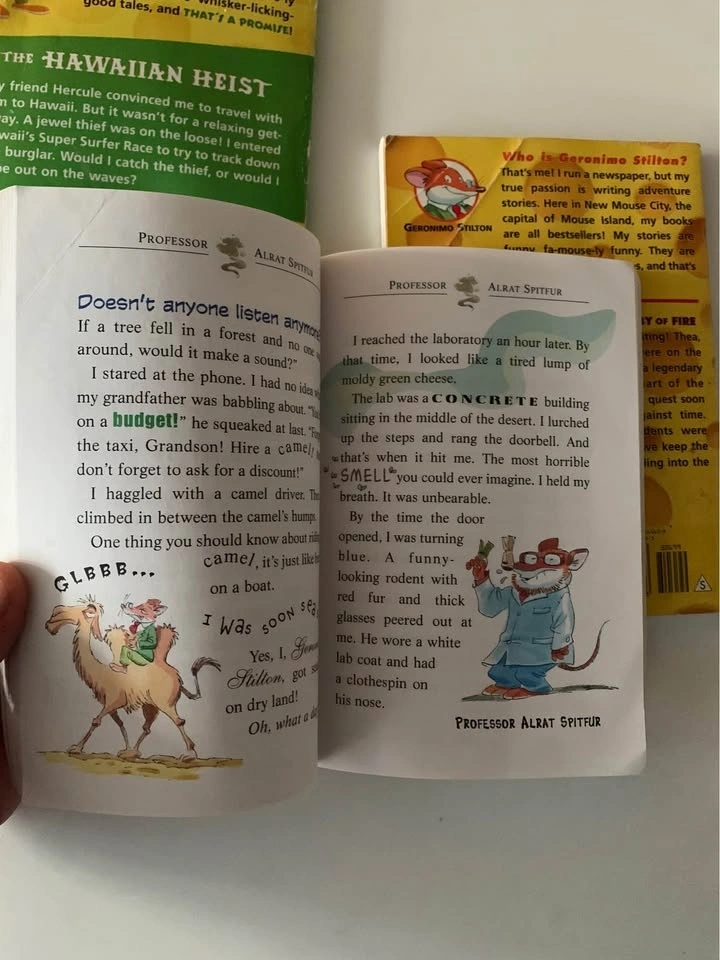 good tales, and THAT'S A PROMISE!
THE HAWAIIAN HEIST
friend Hercule convinced me to travel with
to Hawaii. But it wasn't for a relaxing get-
A jewel thief was on the loose! I entered
Super Surfer Race to try to track down
burglar. Would I catch the thief, or would I
out on the waves?
Who is Geronimo Stilton?
That's me! I run a newspaper, but my
true passion is writing adventure
stories. Here in New Mouse City, the
capital of Mouse Island, my books
are all bestsellers! My stories are
funny, fa-mouse-ly funny. They are
and that's
GERONIMO STILTON
OF FIRE
Thea,
on the
legendary
of the
quest soon
time.
were
keep the
into the
PROFESSOR ALRAT SPITFUR
Doesn't anyone listen anymore
If a tree fell in a forest and no one
around, would it make a sound?"
I stared at the phone. I had no idea
my grandfather was babbling about.
on a budget!" he squeaked at last.
the taxi, Grandson! Hire a camel!
don't forget to ask for a discount!"
I haggled with a camel driver.
climbed in between the camel's humps.
One thing you should know about
camel, it's just like
on a boat.
GLBBB...
I was soon
Yes, I,
Stilton, got
on dry land!
Oh, what a
PROFESSOR ALRAT SPITFUR
I reached the laboratory an hour later. By
that time, I looked like a tired lump of
moldy green cheese.
The lab was a CONCRETE building
sitting in the middle of the desert. I lurched
up the steps and rang the doorbell. And
that's when it hit me. The most horrible
SMELL you could ever imagine. I held my
breath. It was unbearable.
By the time the door
opened, I was turning
blue. A funny-
looking rodent with
red fur and thick
glasses peered out at
me. He wore a white
lab coat and had
a clothespin on
his nose.
PROFESSOR ALRAT SPITFUR